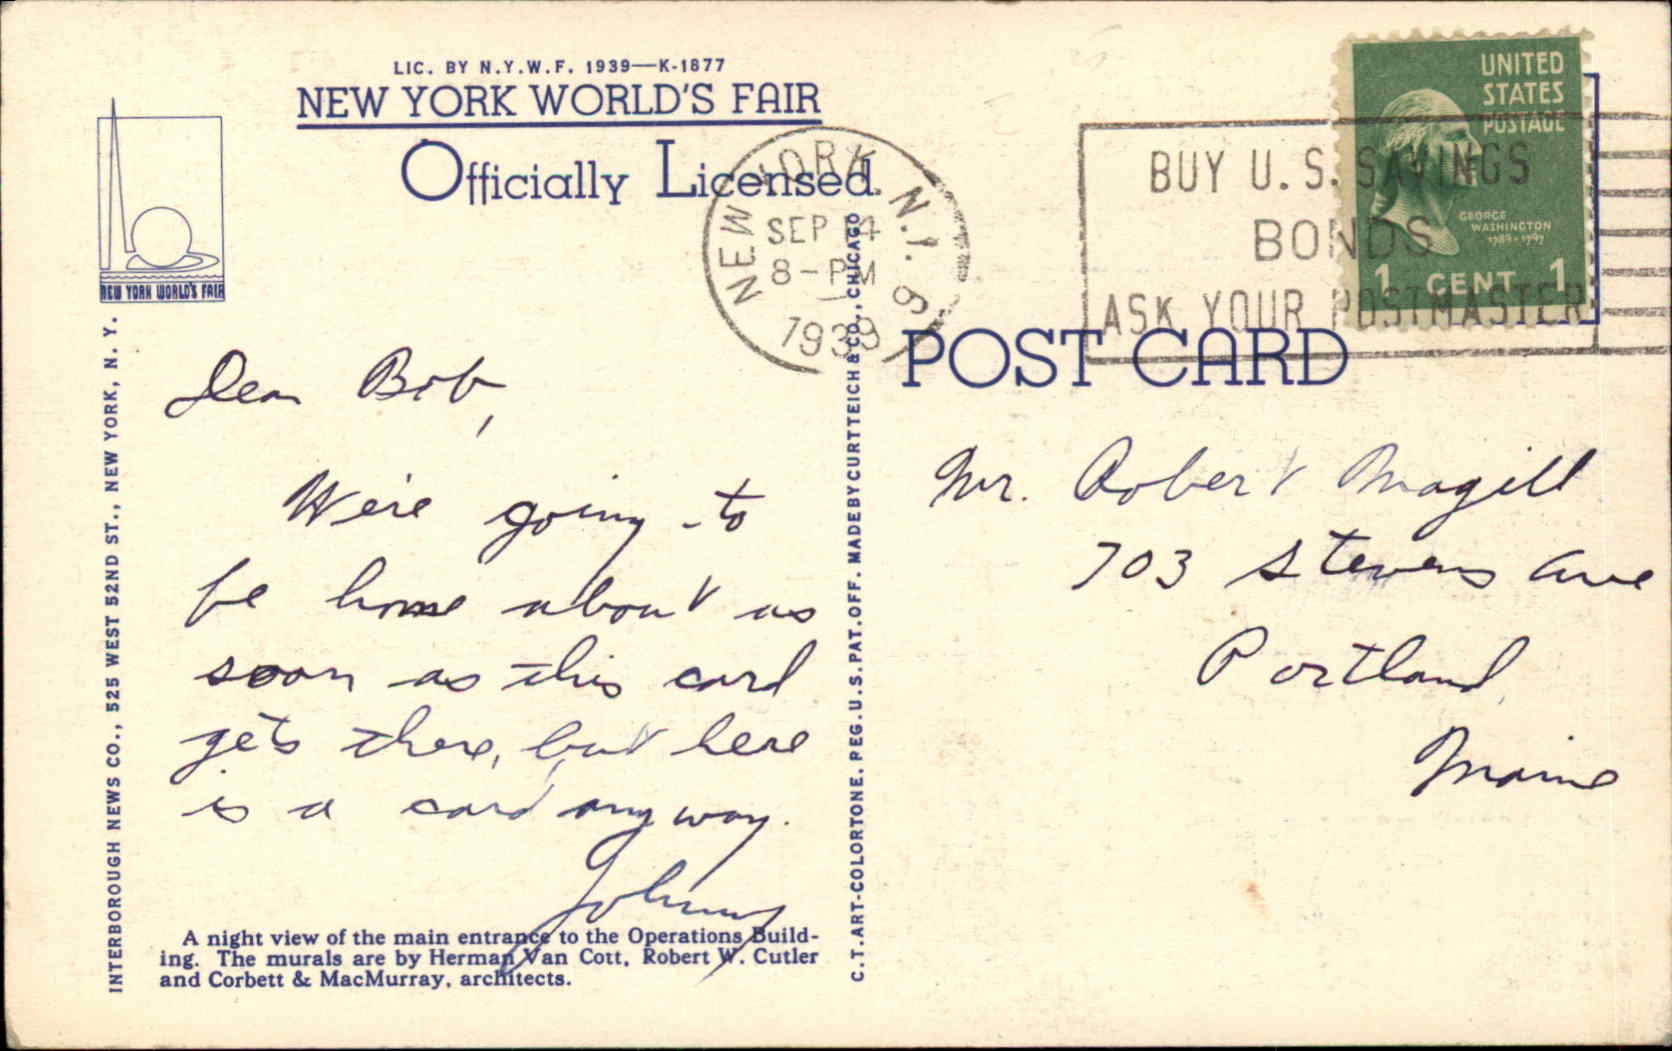 LIC. BY N.Y.W.F. 1939—K-1877
NEW YORK WORLD'S FAIR
Officially Licensed
NEW YORK WORLD'S FAIR
INTERBOROUGH NEWS CO., 525 WEST 52ND ST., NEW YORK, N. Y.
Dear Bob,
We're going to
be home about as
soon as this card
gets there, but here
is a card anyway.
Johnny
A night view of the main entrance to the Operations Build-
ing. The murals are by Herman Van Cott, Robert W. Cutler
and Corbett & MacMurray, architects.
C.T. ART-COLORTONE. REG. U.S. PAT. OFF. MADE BY CURT TEICH & CO., CHICAGO
NEW YORK, N.Y. 9
SEP 14
8-PM
1939
BUY U.S. SAVINGS
BONDS
ASK YOUR POSTMASTER
UNITED
STATES
POSTAGE
GEORGE
WASHINGTON
1789-1797
1 CENT 1
POST CARD
Mr. Robert Magill
703 Stevens Ave
Portland,
Maine